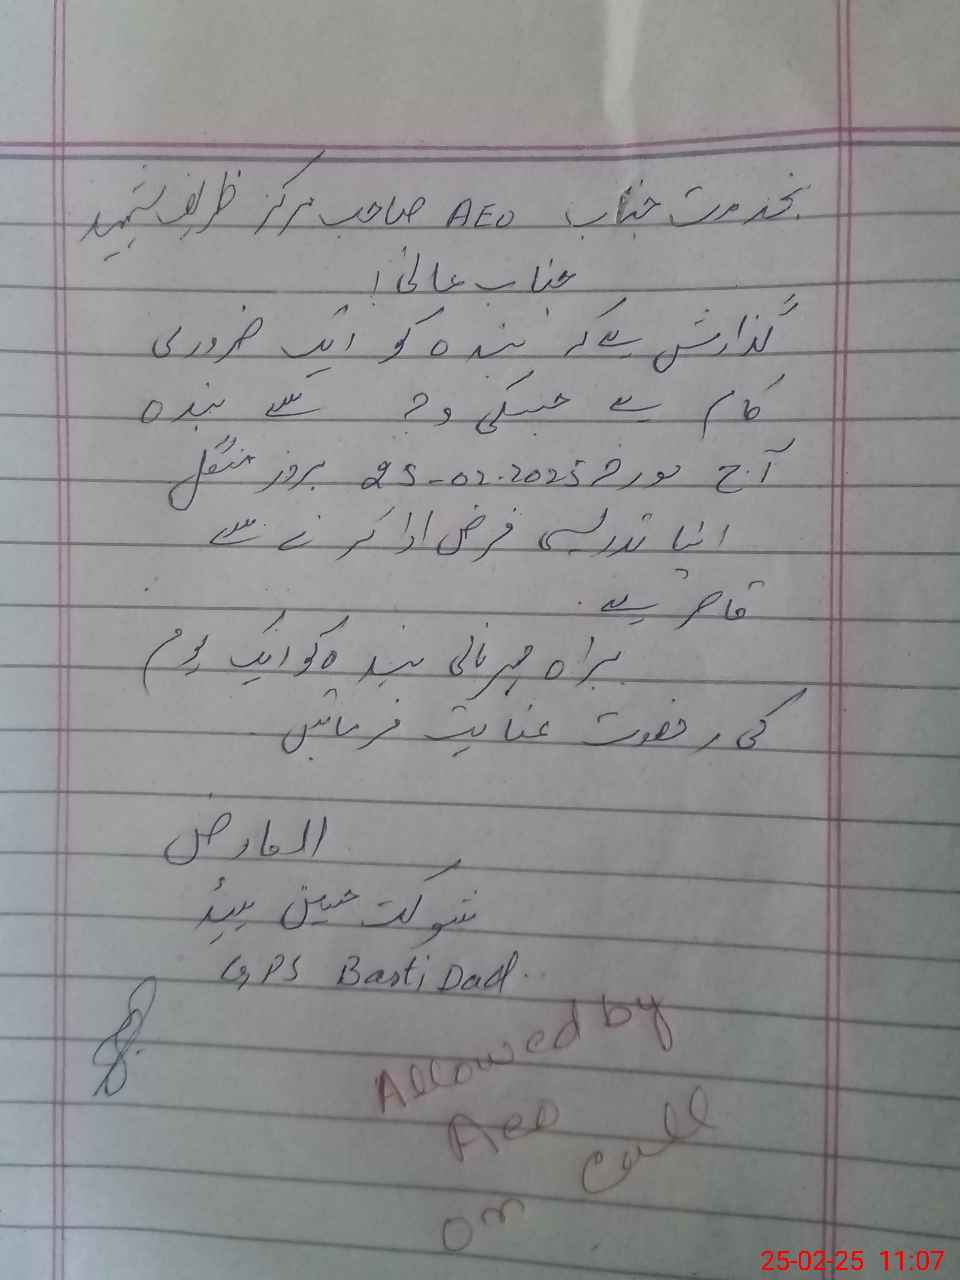 بخدمت جناب AEO صاحب مرکز ظریف شہید
جناب عالی!
گذارش ہے کہ بندہ کو ایک ضروری
کام ہے جسکی وجہ سے بندہ
آج مورخہ 25-02-2025 بروز منگل
اپنا تدریسی فرض ادا کرنے سے
قاصر ہے۔
براہ مہربانی بندہ کو ایک یوم
کی رخصت عنایت فرمائیں۔
العارض
شوکت حسین ہیڈ
GPS Basti Dad
Allowed by
Aeo
on call
25-02-25 11:07